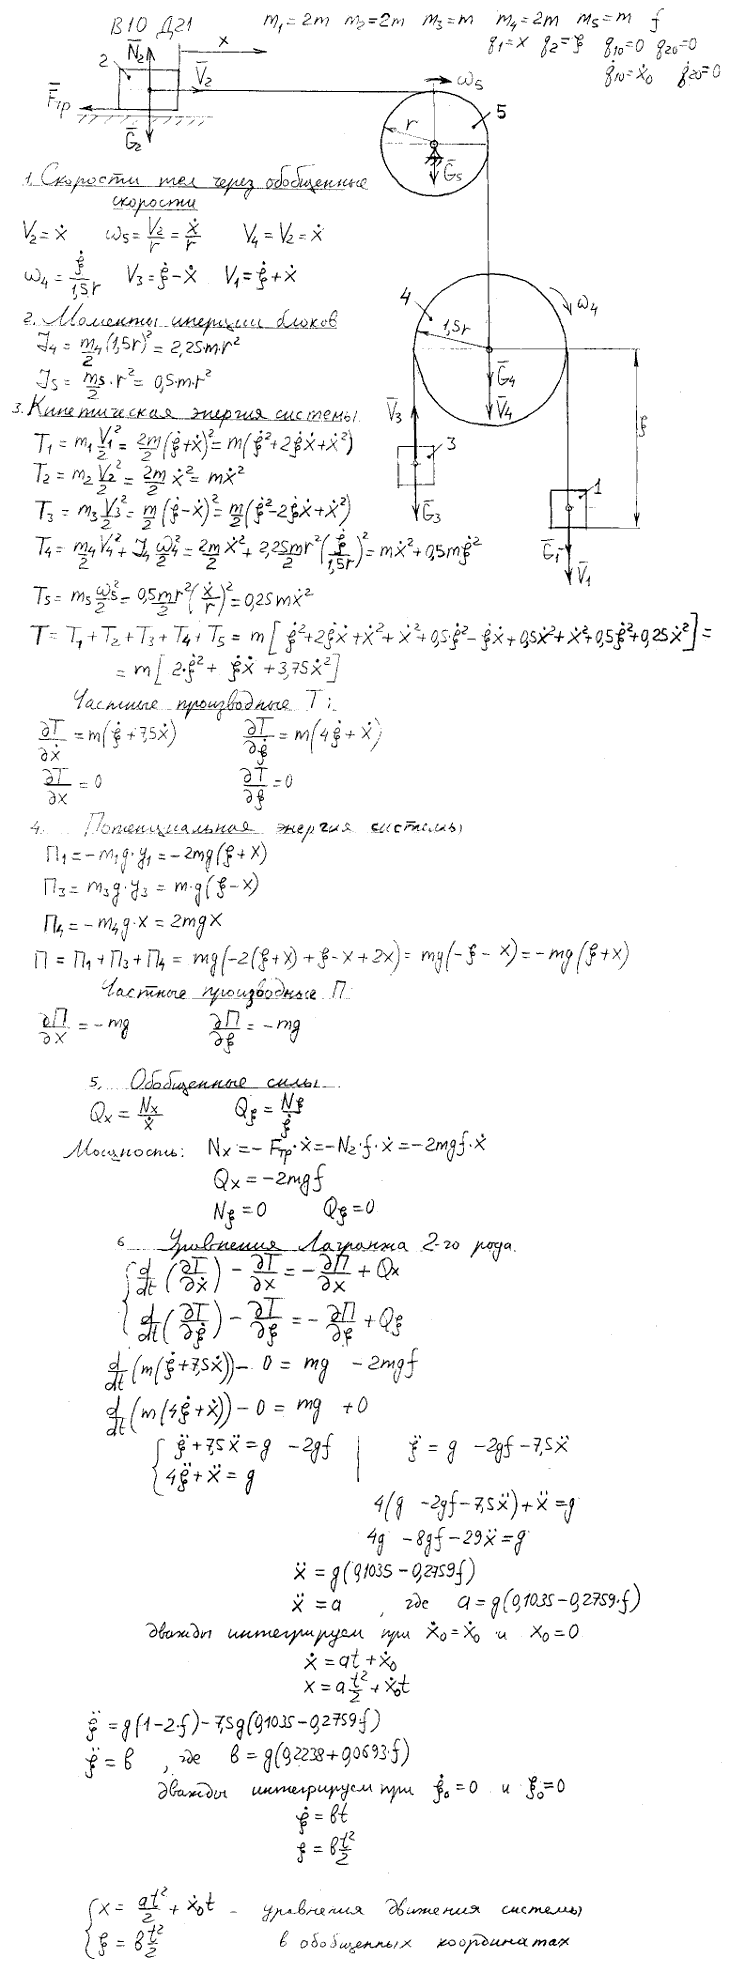 В10 Д21
m₁=2m m₂=2m m₃=m m₄=2m m₅=m f
q₁=x q₂=ξ q₁₀=0 q₂₀=0
q̇₁₀=ẋ₀ q̇₂₀=0
N̄₂
x
2
V̄₂
F̄тр
Ḡ₂
ω₅
r
5
Ḡ₅
1. Скорости тел через обобщенные
скорости
V₂=ẋ ω₅=V₂/r=ẋ/r V₄=V₂=ẋ
ω₄=ξ̇/1,5r V₃=ξ̇-ẋ V₁=ξ̇+ẋ
4
1,5r
ω₄
Ḡ₄
V̄₄
V̄₃
3
Ḡ₃
ξ
1
Ḡ₁
V̄₁
2. Моменты инерции блоков
J₄=m₄/2(1,5r)²=2,25·m·r²
J₅=m₅/2·r²=0,5·m·r²
3. Кинетическая энергия системы
T₁=m₁V₁²/2=2m/2(ξ̇+ẋ)²=m(ξ̇²+2ξ̇ẋ+ẋ²)
T₂=m₂V₂²/2=2m/2 ẋ²=mẋ²
T₃=m₃V₃²/2=m/2(ξ̇-ẋ)²=m/2(ξ̇²-2ξ̇ẋ+ẋ²)
T₄=m₄/2 V₄²+J₄ω₄²/2=2m/2 ẋ²+2,25mr²/2(ξ̇/1,5r)²=mẋ²+0,5mξ̇²
T₅=m₅ω₅²/2=0,5mr²/2(ẋ/r)²=0,25mẋ²
T=T₁+T₂+T₃+T₄+T₅=m[ξ̇²+2ξ̇ẋ+ẋ²+ẋ²+0,5·ξ̇²-ξ̇ẋ+0,5ẋ²+ẋ²+0,5ξ̇²+0,25ẋ²]=
=m[2·ξ̇²+ξ̇ẋ+3,75ẋ²]
Частные производные T:
∂T/∂ẋ=m(ξ̇+7,5ẋ) ∂T/∂ξ̇=m(4ξ̇+ẋ)
∂T/∂x=0 ∂T/∂ξ=0
4. Потенциальная энергия системы
П₁=-m₁g·y₁=-2mg(ξ+x)
П₃=m₃g·y₃=m·g(ξ-x)
П₄=-m₄g·x=2mgx
П=П₁+П₃+П₄=mg(-2(ξ+x)+ξ-x+2x)=mg(-ξ-x)=-mg(ξ+x)
Частные производные П
∂П/∂x=-mg ∂П/∂ξ=-mg
5. Обобщенные силы
Qx=Nx/ẋ Qξ=Nξ/ξ̇
Мощность: Nx=-Fтр·ẋ=-N₂·f·ẋ=-2mgf·ẋ
Qx=-2mgf
Nξ=0 Qξ=0
6 Уравнения Лагранжа 2-го рода.
d/dt(∂T/∂ẋ)-∂T/∂x=-∂П/∂x+Qx
d/dt(∂T/∂ξ̇)-∂T/∂ξ=-∂П/∂ξ+Qξ
d/dt(m(ξ̇+7,5ẋ))-0=mg -2mgf
d/dt(m(4ξ̇+ẋ))-0=mg +0
{ξ̈+7,5ẍ=g -2gf | ξ̈=g -2gf-7,5ẍ
{4ξ̈+ẍ=g
4(g -2gf-7,5ẍ)+ẍ=g
4g -8gf-29ẍ=g
ẍ=g(0,1035-0,2759f)
ẍ=a , где a=g(0,1035-0,2759·f)
дважды интегрируем при ẋ₀=ẋ₀ и x₀=0
ẋ=at+ẋ₀
x=at²/2+ẋ₀t
ξ̈=g(1-2·f)-7,5g(0,1035-0,2759·f)
ξ̈=в , где в=g(0,2238+0,0693·f)
дважды интегрируем при ξ̇₀=0 и ξ₀=0
ξ̇=вt
ξ=вt²/2
{x=at²/2+ẋ₀t - уравнения движения системы
{ξ=вt²/2 в обобщенных координатах